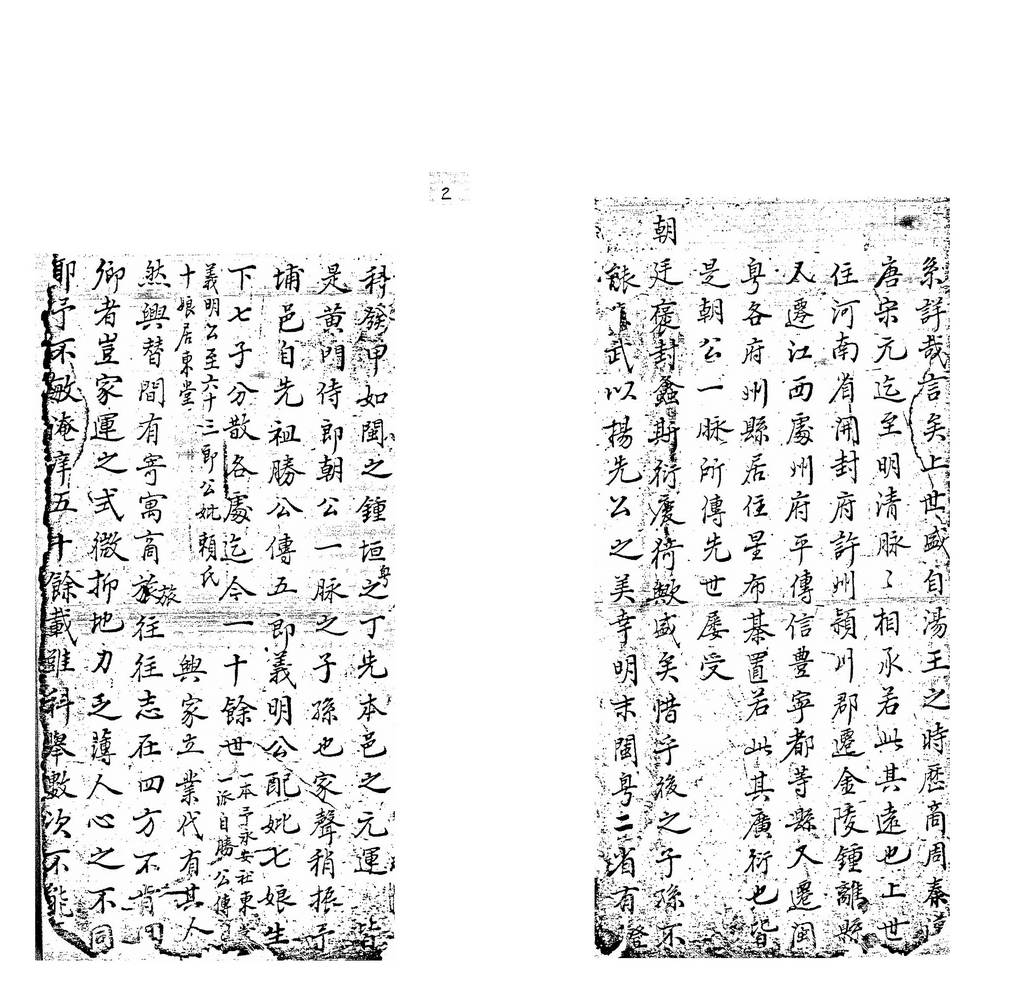 系詳哉言矣上世盛自湯王之時歷商周秦漢
唐宋元迄至明清脉々相承若此其遠也上世
住河南省開封府許州潁川郡遷金陵鍾離縣
又遷江西處州府平傳信豊寧都等縣又遷閩
粵各府州縣居住星布碁置若此其廣衍也皆
是朝公一脉所傳先世屡受
朝廷褒封螽斯衍慶猗歟盛矣惜乎後之子孫不
能 武以揚先公之美幸明末閩粵二省有登
2
科發甲如閩之鍾垣粵之丁先本邑之元運皆
是黄門侍郎朝公一脉之子孫也家聲稍振于
埔邑自先祖勝公傳五郎義明公配妣七娘生
下七子分散各處迄今一十餘世一本予永安社東
一派自勝公傳
義明公至六十三郎公妣頼氏
十娘居東堂興家立業代有其人
然興替間有寄寓商旅往往志在四方不肯回
鄉者豈家運之式微抑地力乏薄人心之不同
耶予不敏淹庠五十餘載雖科舉數次不能